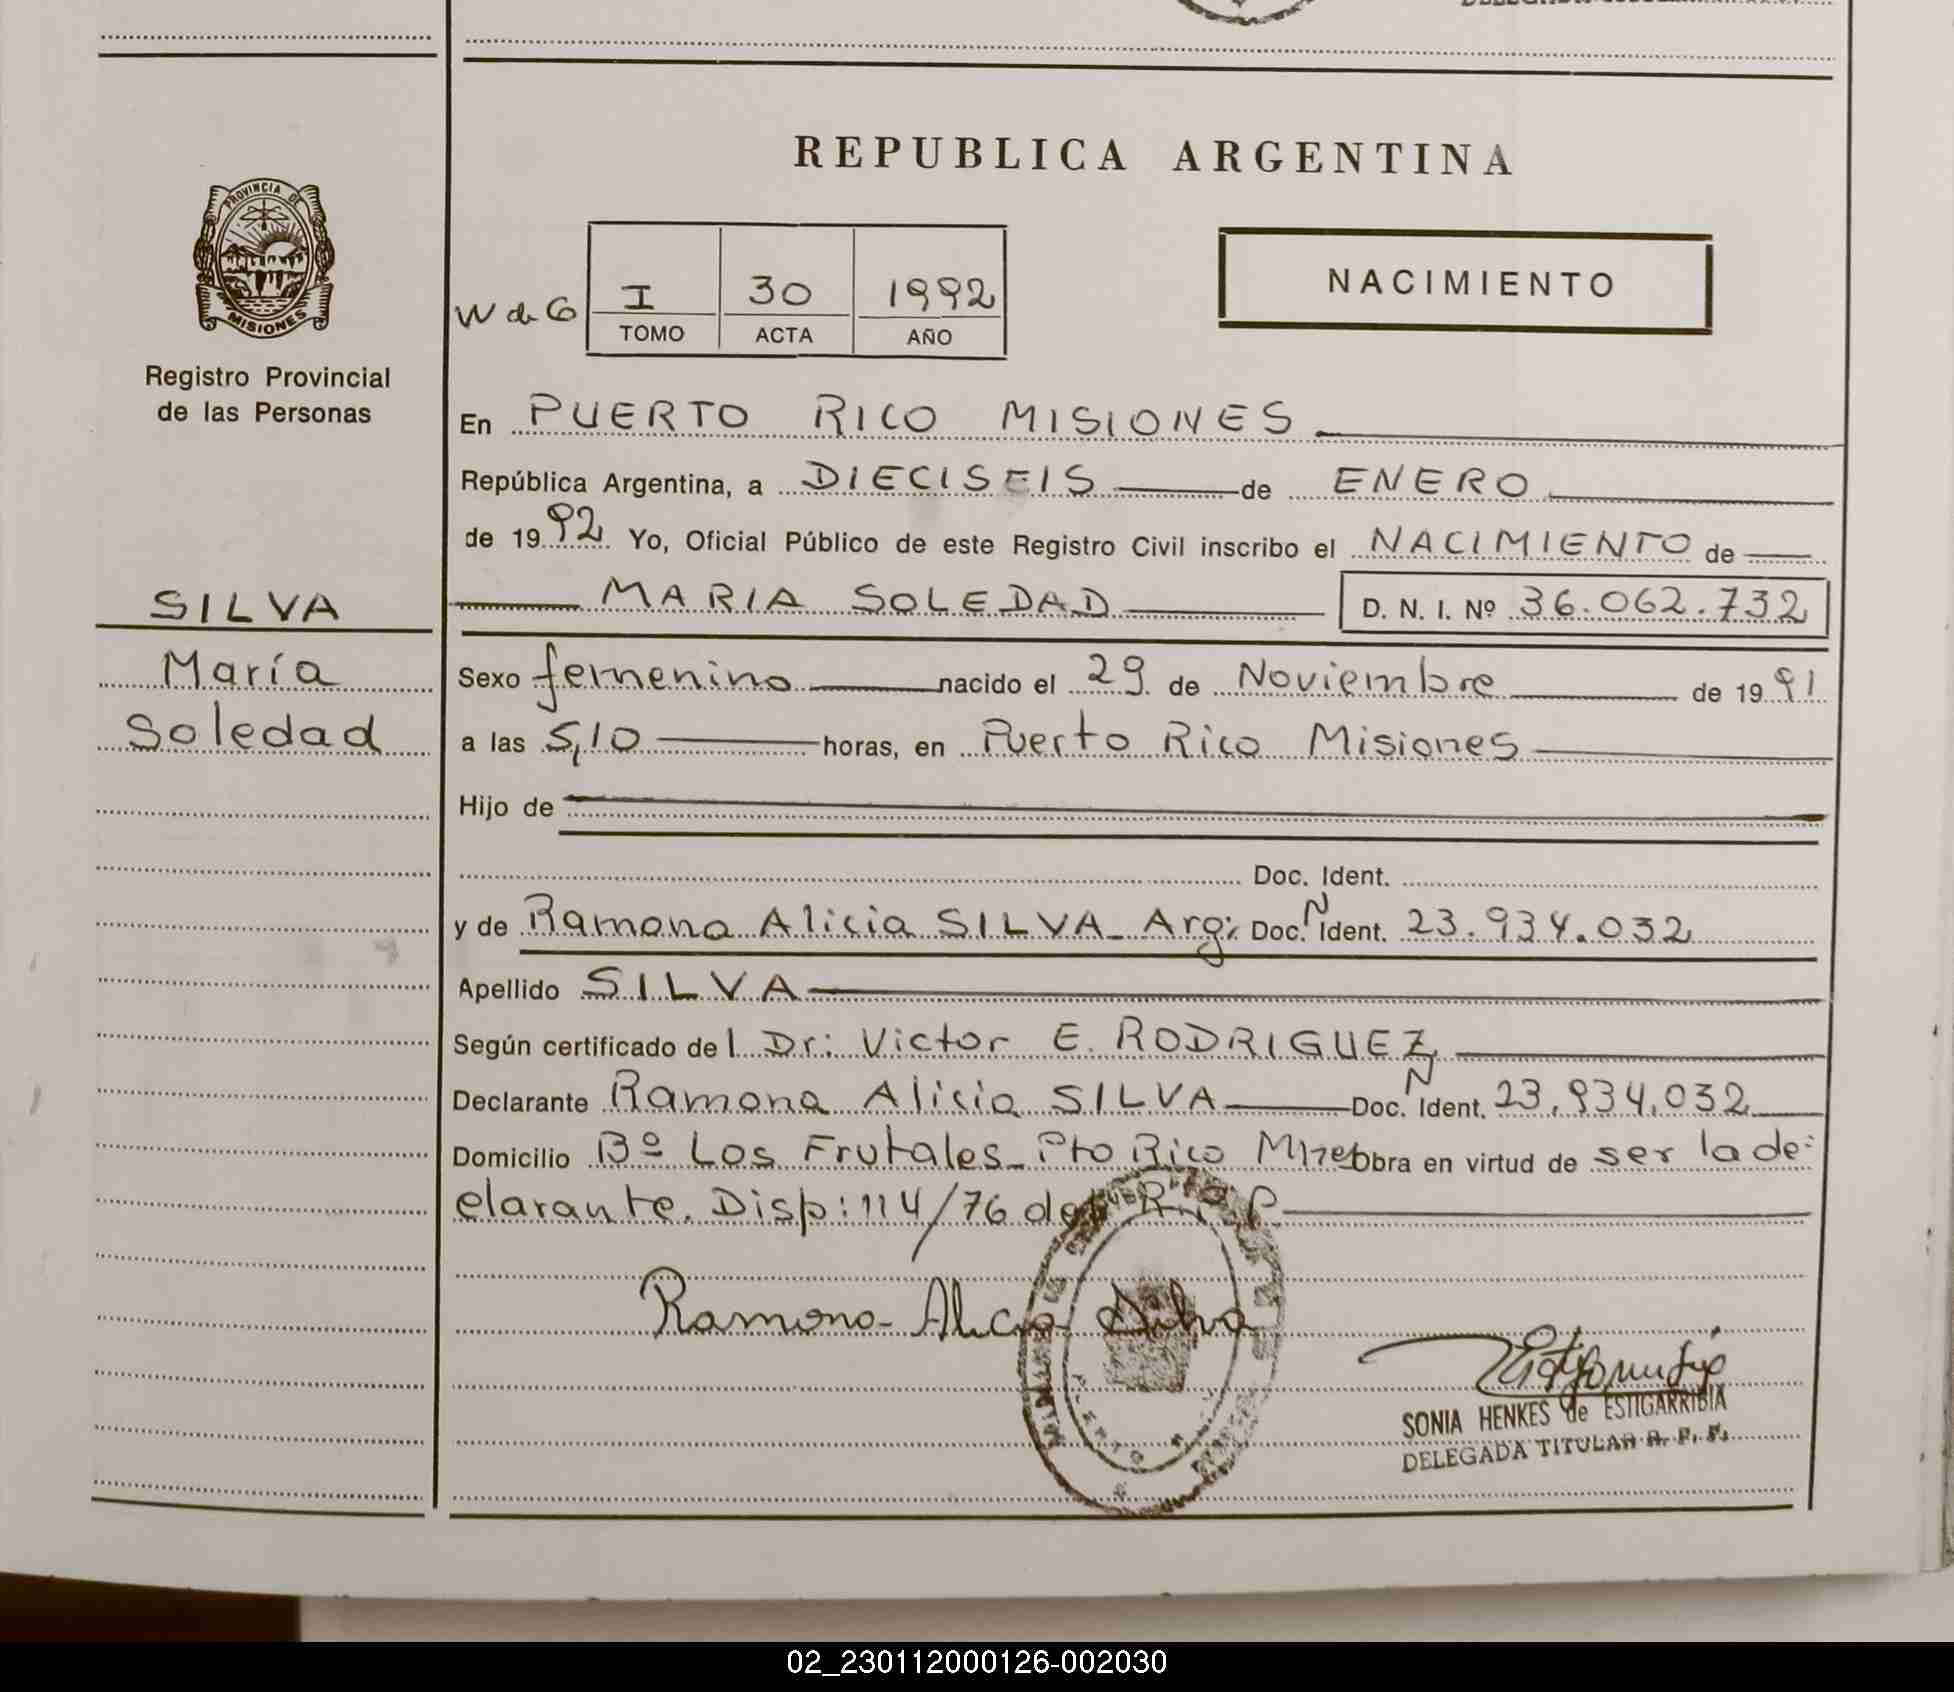 REPUBLICA ARGENTINA
PROVINCIA DE
MISIONES
Registro Provincial
de las Personas
NACIMIENTO
W de G
I 30 1992
TOMO ACTA AÑO
En PUERTO RICO MISIONES
República Argentina, a DIECISEIS de ENERO
de 1992 Yo, Oficial Público de este Registro Civil inscribo el NACIMIENTO de
MARIA SOLEDAD D. N. I. Nº 36.062.732
SILVA
María
Soledad
Sexo femenino nacido el 29 de Noviembre de 1991
a las 5,10 horas, en Puerto Rico Misiones
Hijo de
Doc. Ident.
y de Ramona Alicia SILVA - Arg: Doc. N Ident. 23.934.032
Apellido SILVA
Según certificado del Dr: Victor E. RODRIGUEZ
Declarante Ramona Alicia SILVA Doc. N Ident. 23.934.032
Domicilio Bº Los Frutales - Pto Rico Mnes Obra en virtud de ser la de
clarante. Disp: 114/76 del R. P.
Ramona Alicia Silva
SONIA HENKES de ESTIGARRIBIA
DELEGADA TITULAR R. P. P.
02_230112000126-002030